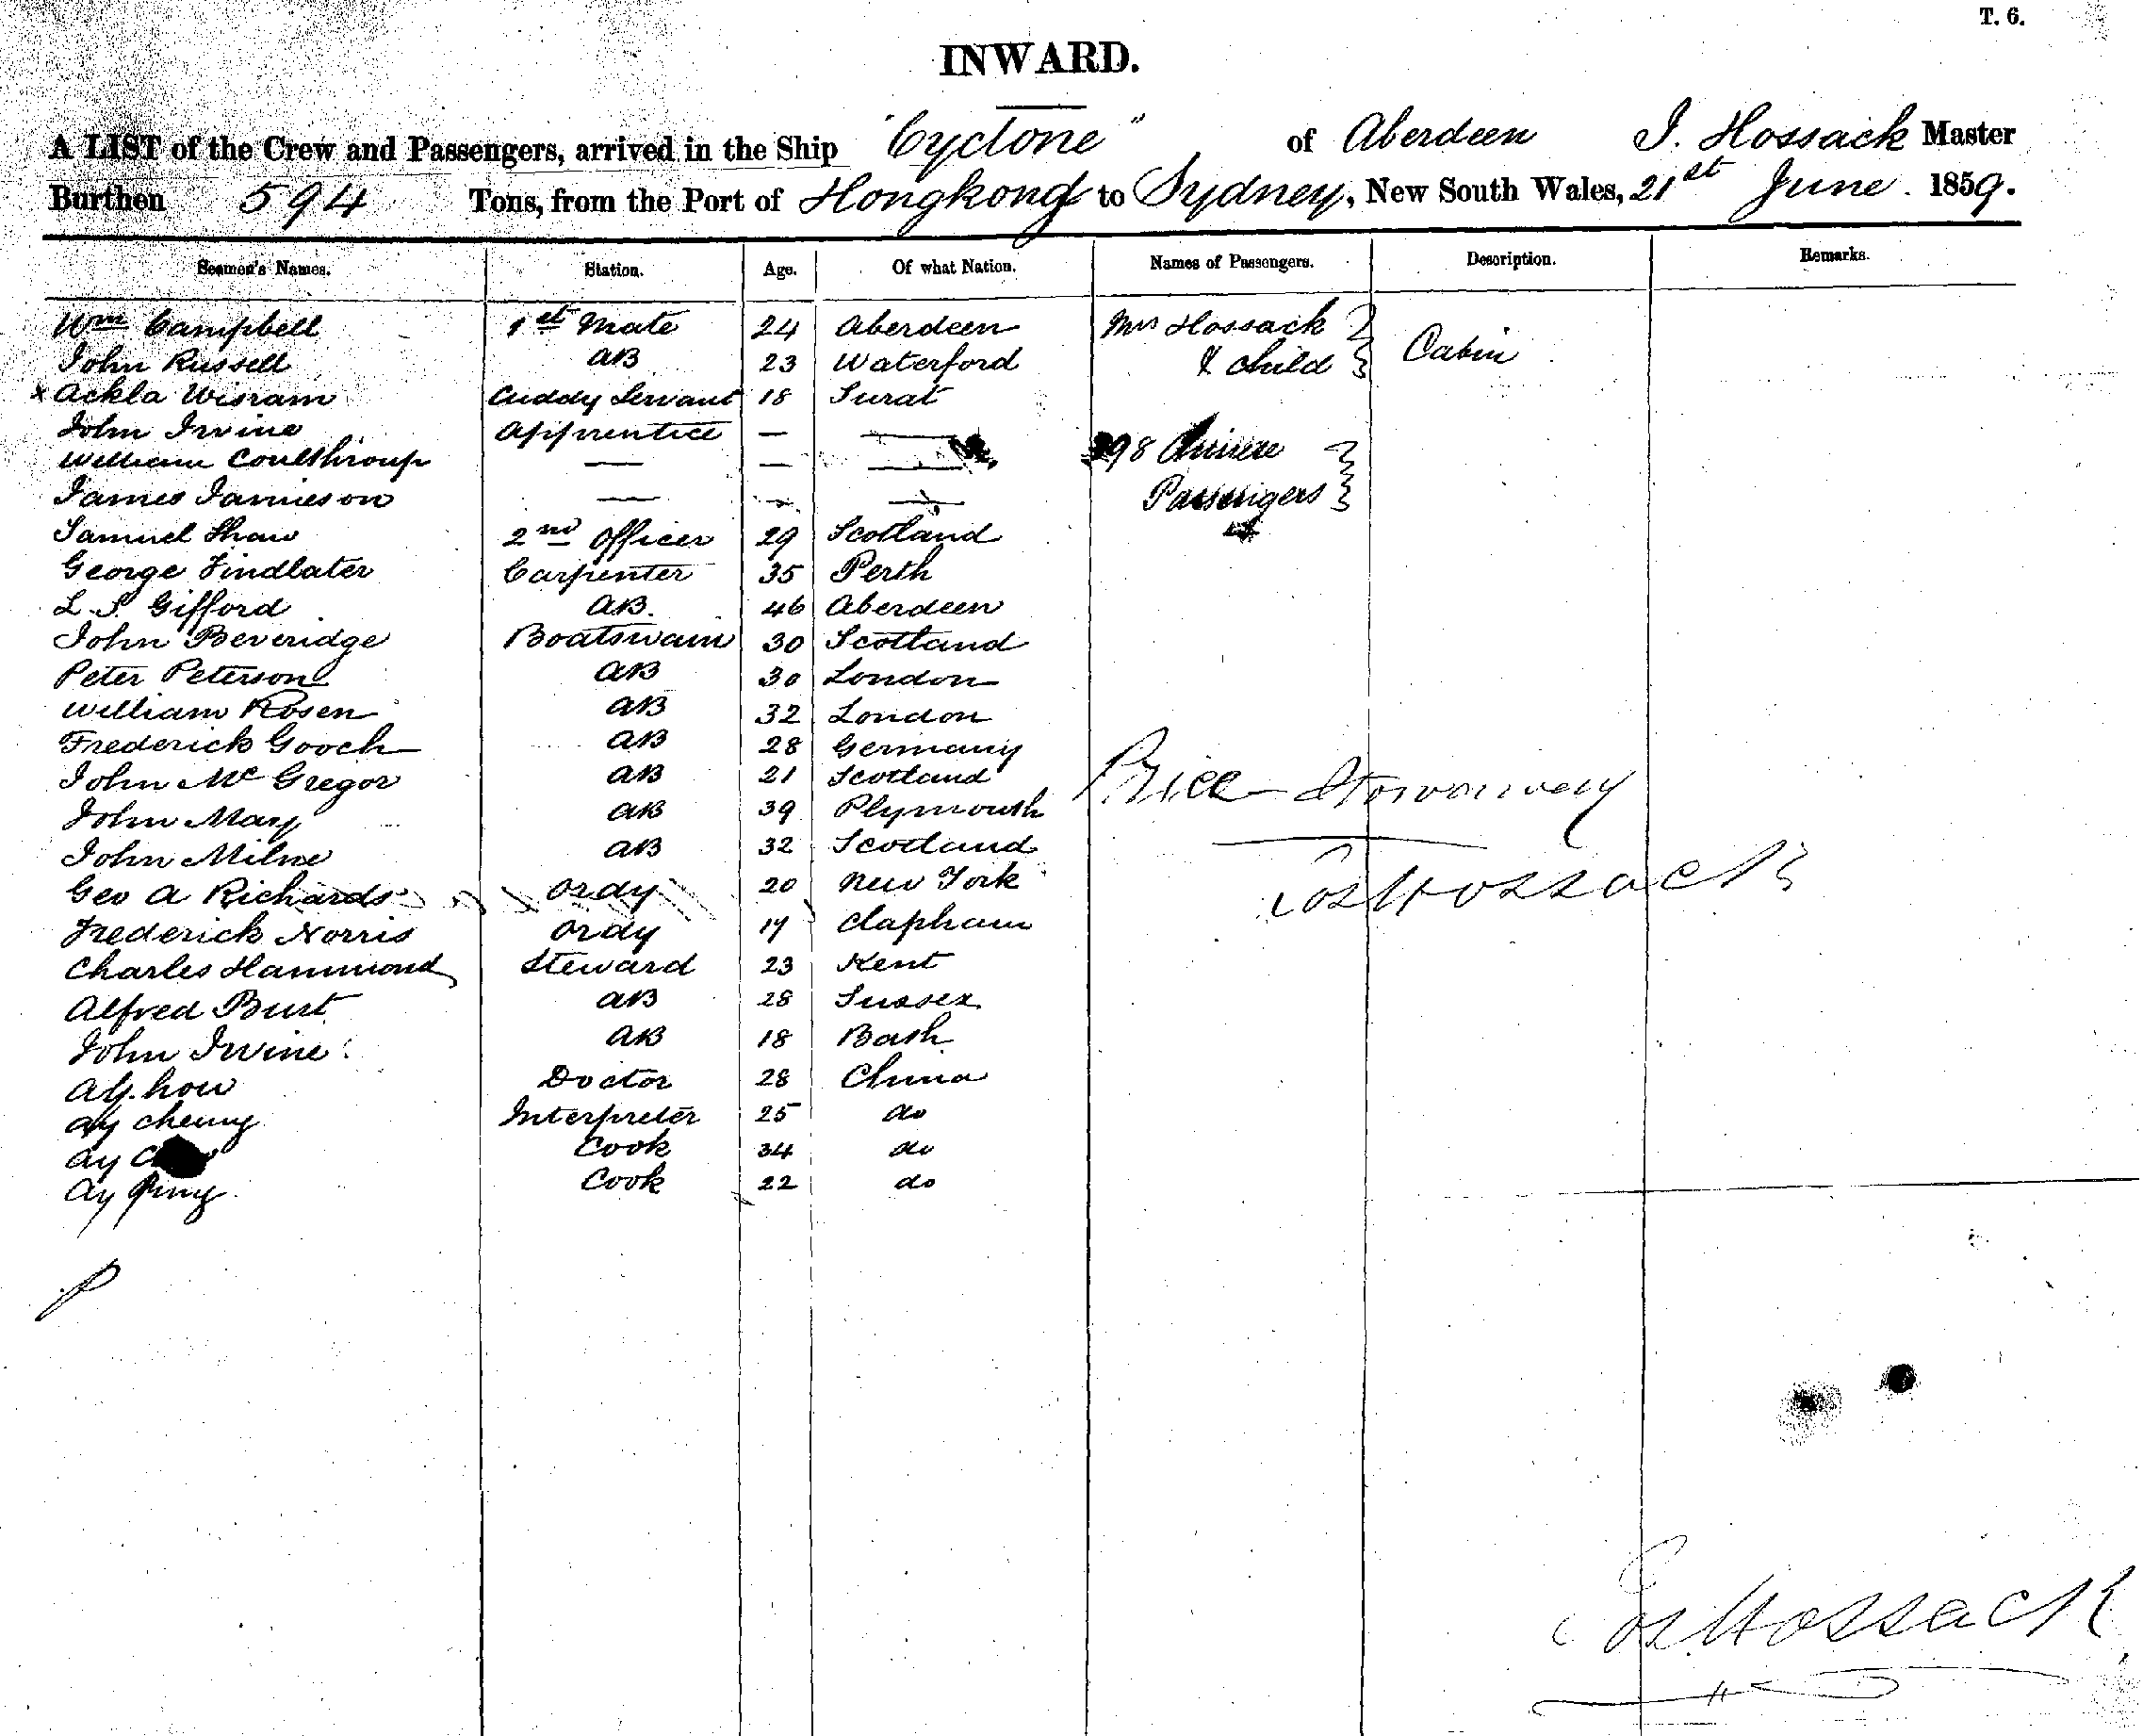 T. 6.
INWARD.
A LIST of the Crew and Passengers, arrived in the Ship "Cyclone" of Aberdeen J. Hossack Master
Burthen 594 Tons, from the Port of Hongkong to Sydney, New South Wales, 21st June. 1859.
Seamen's Names. Station. Age. Of what Nation. Names of Passengers. Description. Remarks.
Wm Campbell 1st Mate 24 Aberdeen Mrs Hossack
John Russell AB 23 Waterford & child Cabin
x Ackla Wisram Cuddy Servant 18 Surat
John Irvine Apprentice — —
William Coulthroup — — — 98 Chinese
James Jamieson — — — Passengers
Samuel Shaw 2nd Officer 29 Scotland
George Findlater Carpenter 35 Perth
L. S. Gifford AB. 46 Aberdeen
John Beveridge Boatswain 30 Scotland
Peter Peterson AB 30 London
William Rosen AB 32 London
Frederick Gooch AB 28 Germany
John McGregor AB 21 Scotland
John May AB 39 Plymouth
John Milne AB 32 Scotland
Geo A Richards Ordy 20 New York
Frederick Norris Ordy 17 Clapham
Charles Hammond Steward 23 Kent
Alfred Burt AB 28 Sussex
John Irvine AB 18 Bath
Ay. how Doctor 28 China
Ay cheung Interpreter 25 do
Ay Cook 34 do
Ay Cook 22 do
Jos Hossack
Jos Hossack